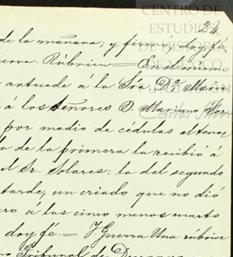 CENTRO DE
ESTUDI
24.
de la mañana, y fir
doy fé.
Rúbrica
antecede á la Sra Da Maria
a los Señores D Mariano
por medio de cédulas al tenor
de la primera la recibió á
el Sr. Solares: la del segundo
tarde, un criado que no dió
ro á las cinco menos cuarto
doy fé.— J Guerra Una rúbrica
Tribunal de